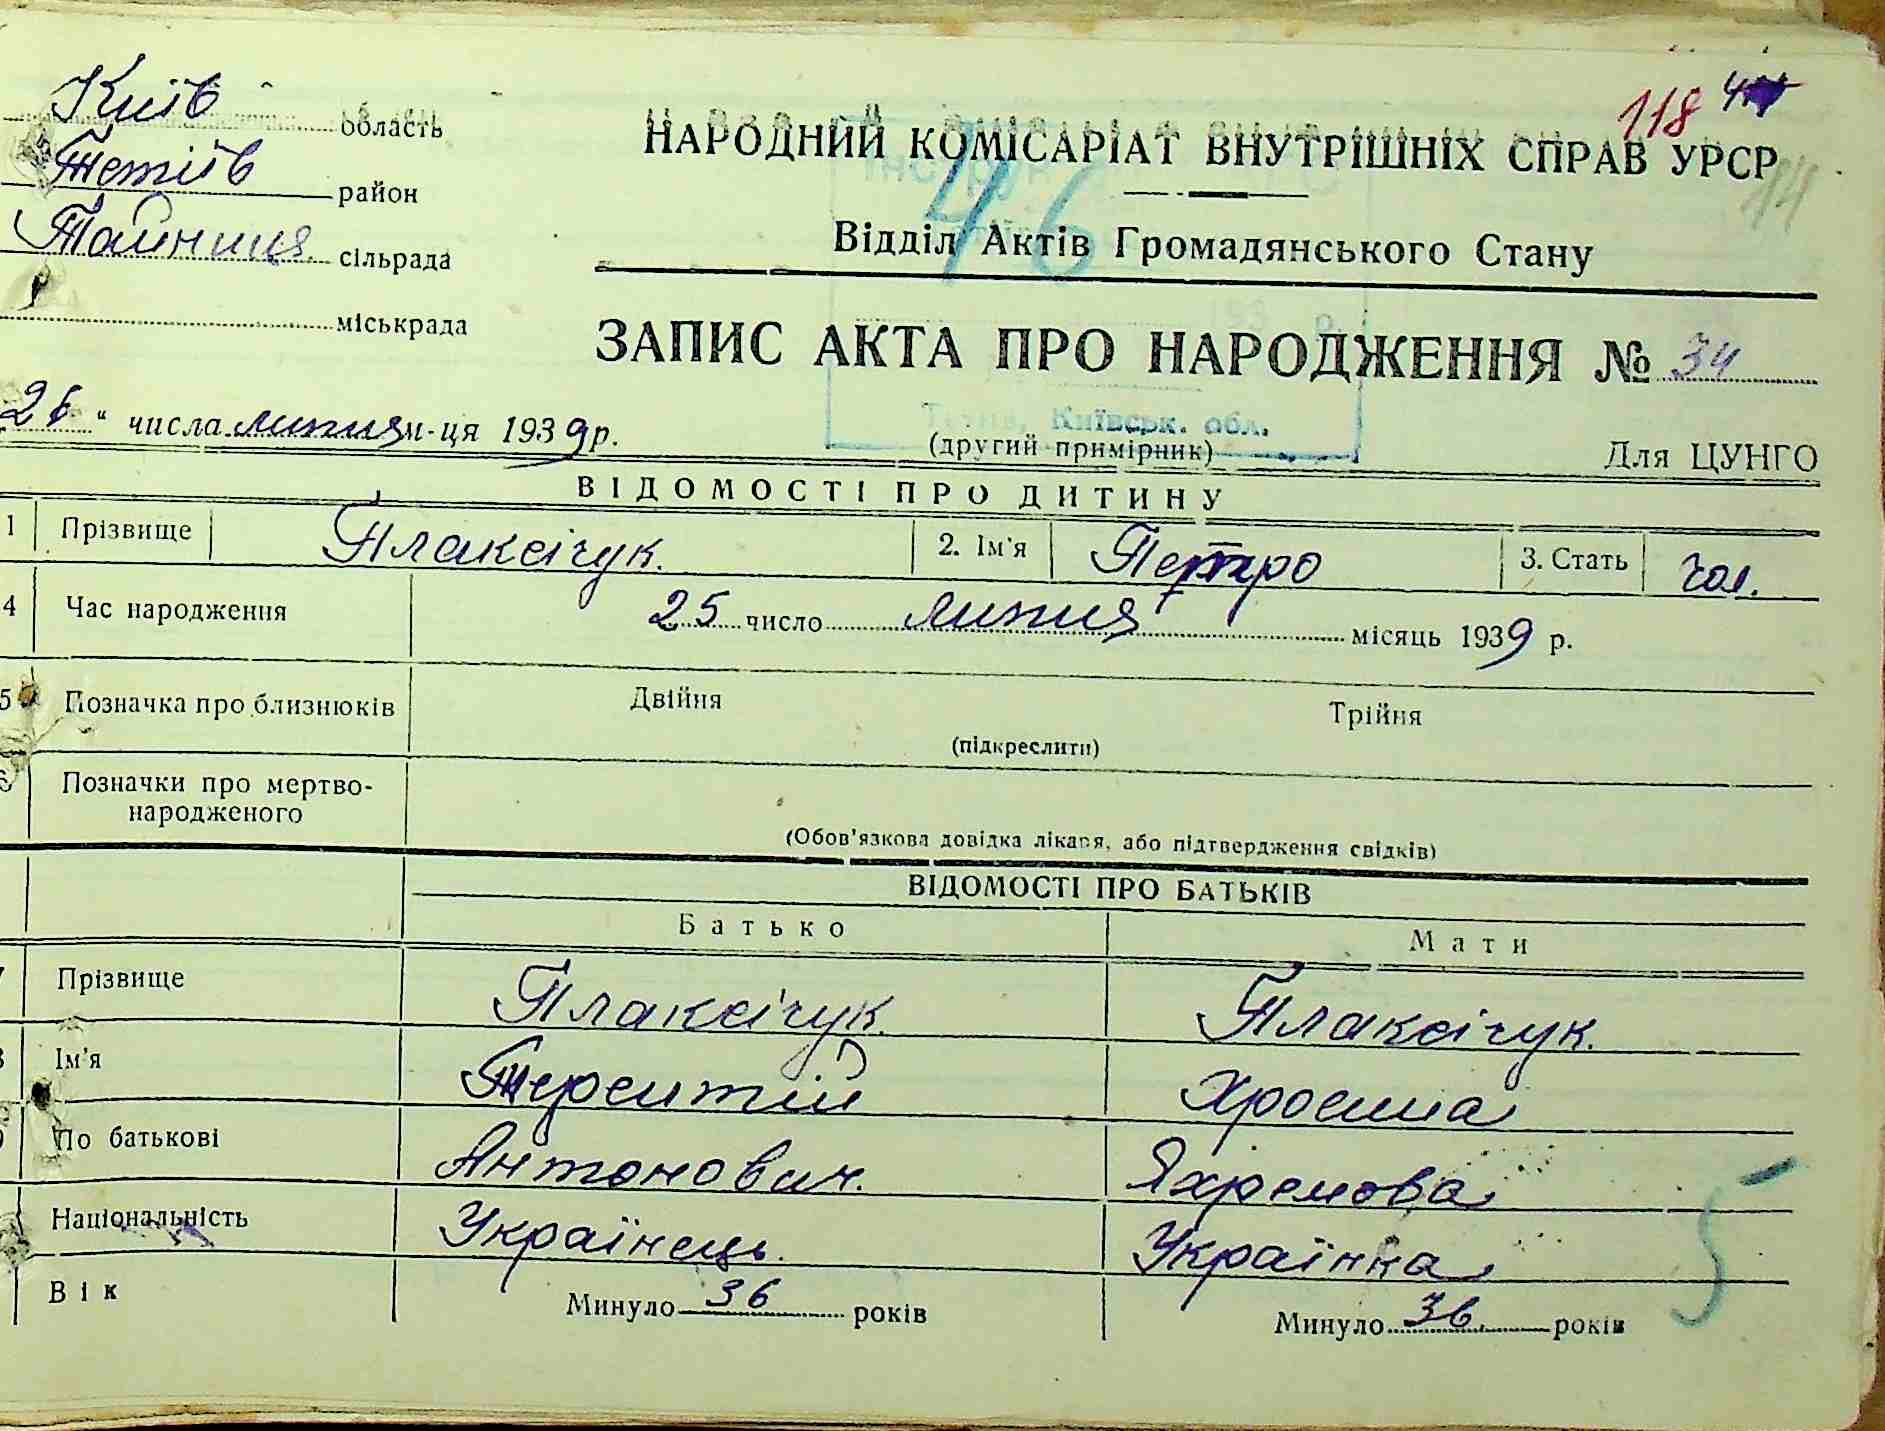 Київ область
Тетіїв район
Тайниця сільрада
міськрада
118
НАРОДНИЙ КОМІСАРІАТ ВНУТРІШНІХ СПРАВ УРСР
46
Відділ Актів Громадянського Стану
ЗАПИС АКТА ПРО НАРОДЖЕННЯ № 34
193 р.
26 " числа липня м-ця 1939 р.
Київськ. обл.
(другий примірник)
Для ЦУНГО
ВІДОМОСТІ ПРО ДИТИНУ
1 Прізвище Плаксічук. 2. Ім'я Петро 3. Стать чол.
4 Час народження 25 число липня місяць 1939 р.
5 Позначка про близнюків Двійня Трійня
(підкреслити)
6 Позначки про мертво-
народженого
(Обов'язкова довідка лікаря, або підтвердження свідків)
ВІДОМОСТІ ПРО БАТЬКІВ
Батько Мати
Прізвище Плаксічук. Плаксічук.
Ім'я Терентій Хросина
По батькові Антонович. Яхремова
Національність Українець. Українка
Вік Минуло 36 років Минуло 36 років